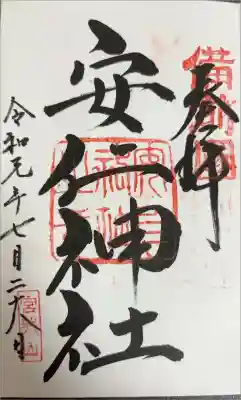 奉拝
安仁神社
令和元年七月二十八日